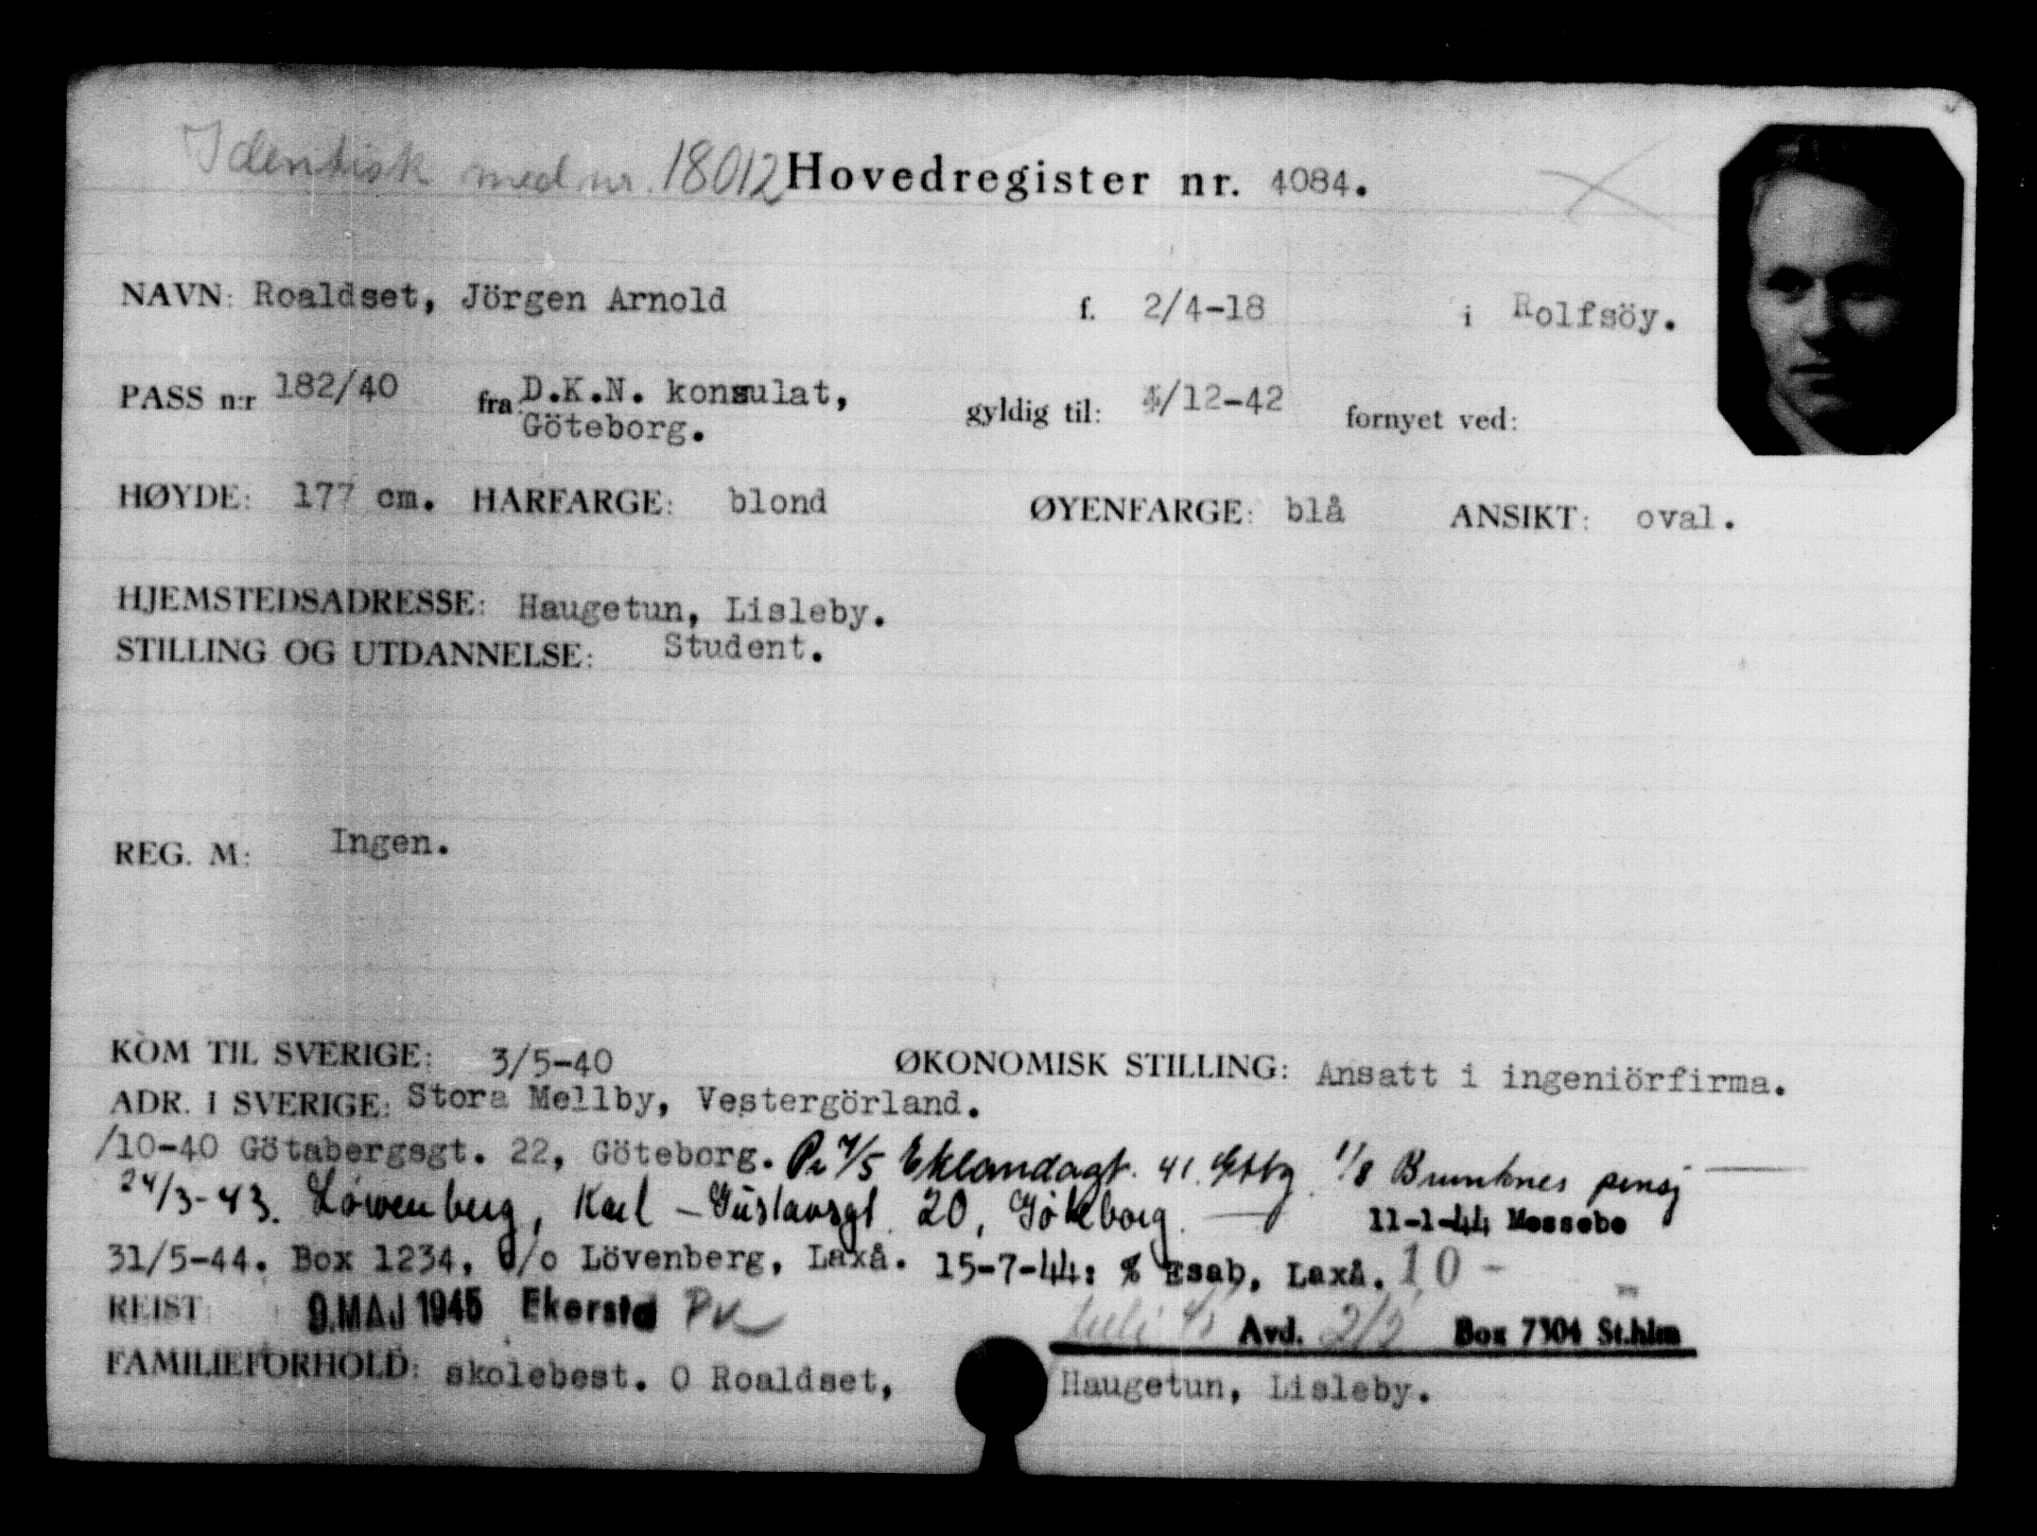 Identisk med nr. 18012 Hovedregister nr. 4084.
NAVN: Roaldset, Jörgen Arnold f. 2/4-18 i Rolfsöy.
PASS n:r 182/40 fra D.K.N. konsulat, Göteborg. gyldig til: /12-42 fornyet ved:
HØYDE: 177 cm. HARFARGE: blond ØYENFARGE: blå ANSIKT: oval.
HJEMSTEDSADRESSE: Haugetun, Lisleby.
STILLING OG UTDANNELSE: Student.
REG. M: Ingen.
KOM TIL SVERIGE: 3/5-40 ØKONOMISK STILLING: Ansatt i ingeniörfirma.
ADR. I SVERIGE: Stora Mellby, Vestergörland.
/10-40 Götabergsgt. 22, Göteborg. Eklandagt. 41. Gtbg. 1/8
24/3-43. Löwenberg, Karl-Gustavsgt 20, Göteborg. 11-1-44 Messebo
31/5-44. Box 1234, c/o Lövenberg, Laxå. 15-7-44: % Esab, Laxå. 10-
REIST: 9.MAJ 1945 Ekerstd Juli 45 Avd. 2/3 Box 7304 St.hlm
FAMILIEFORHOLD: skolebest. O Roaldset, Haugetun, Lisleby.